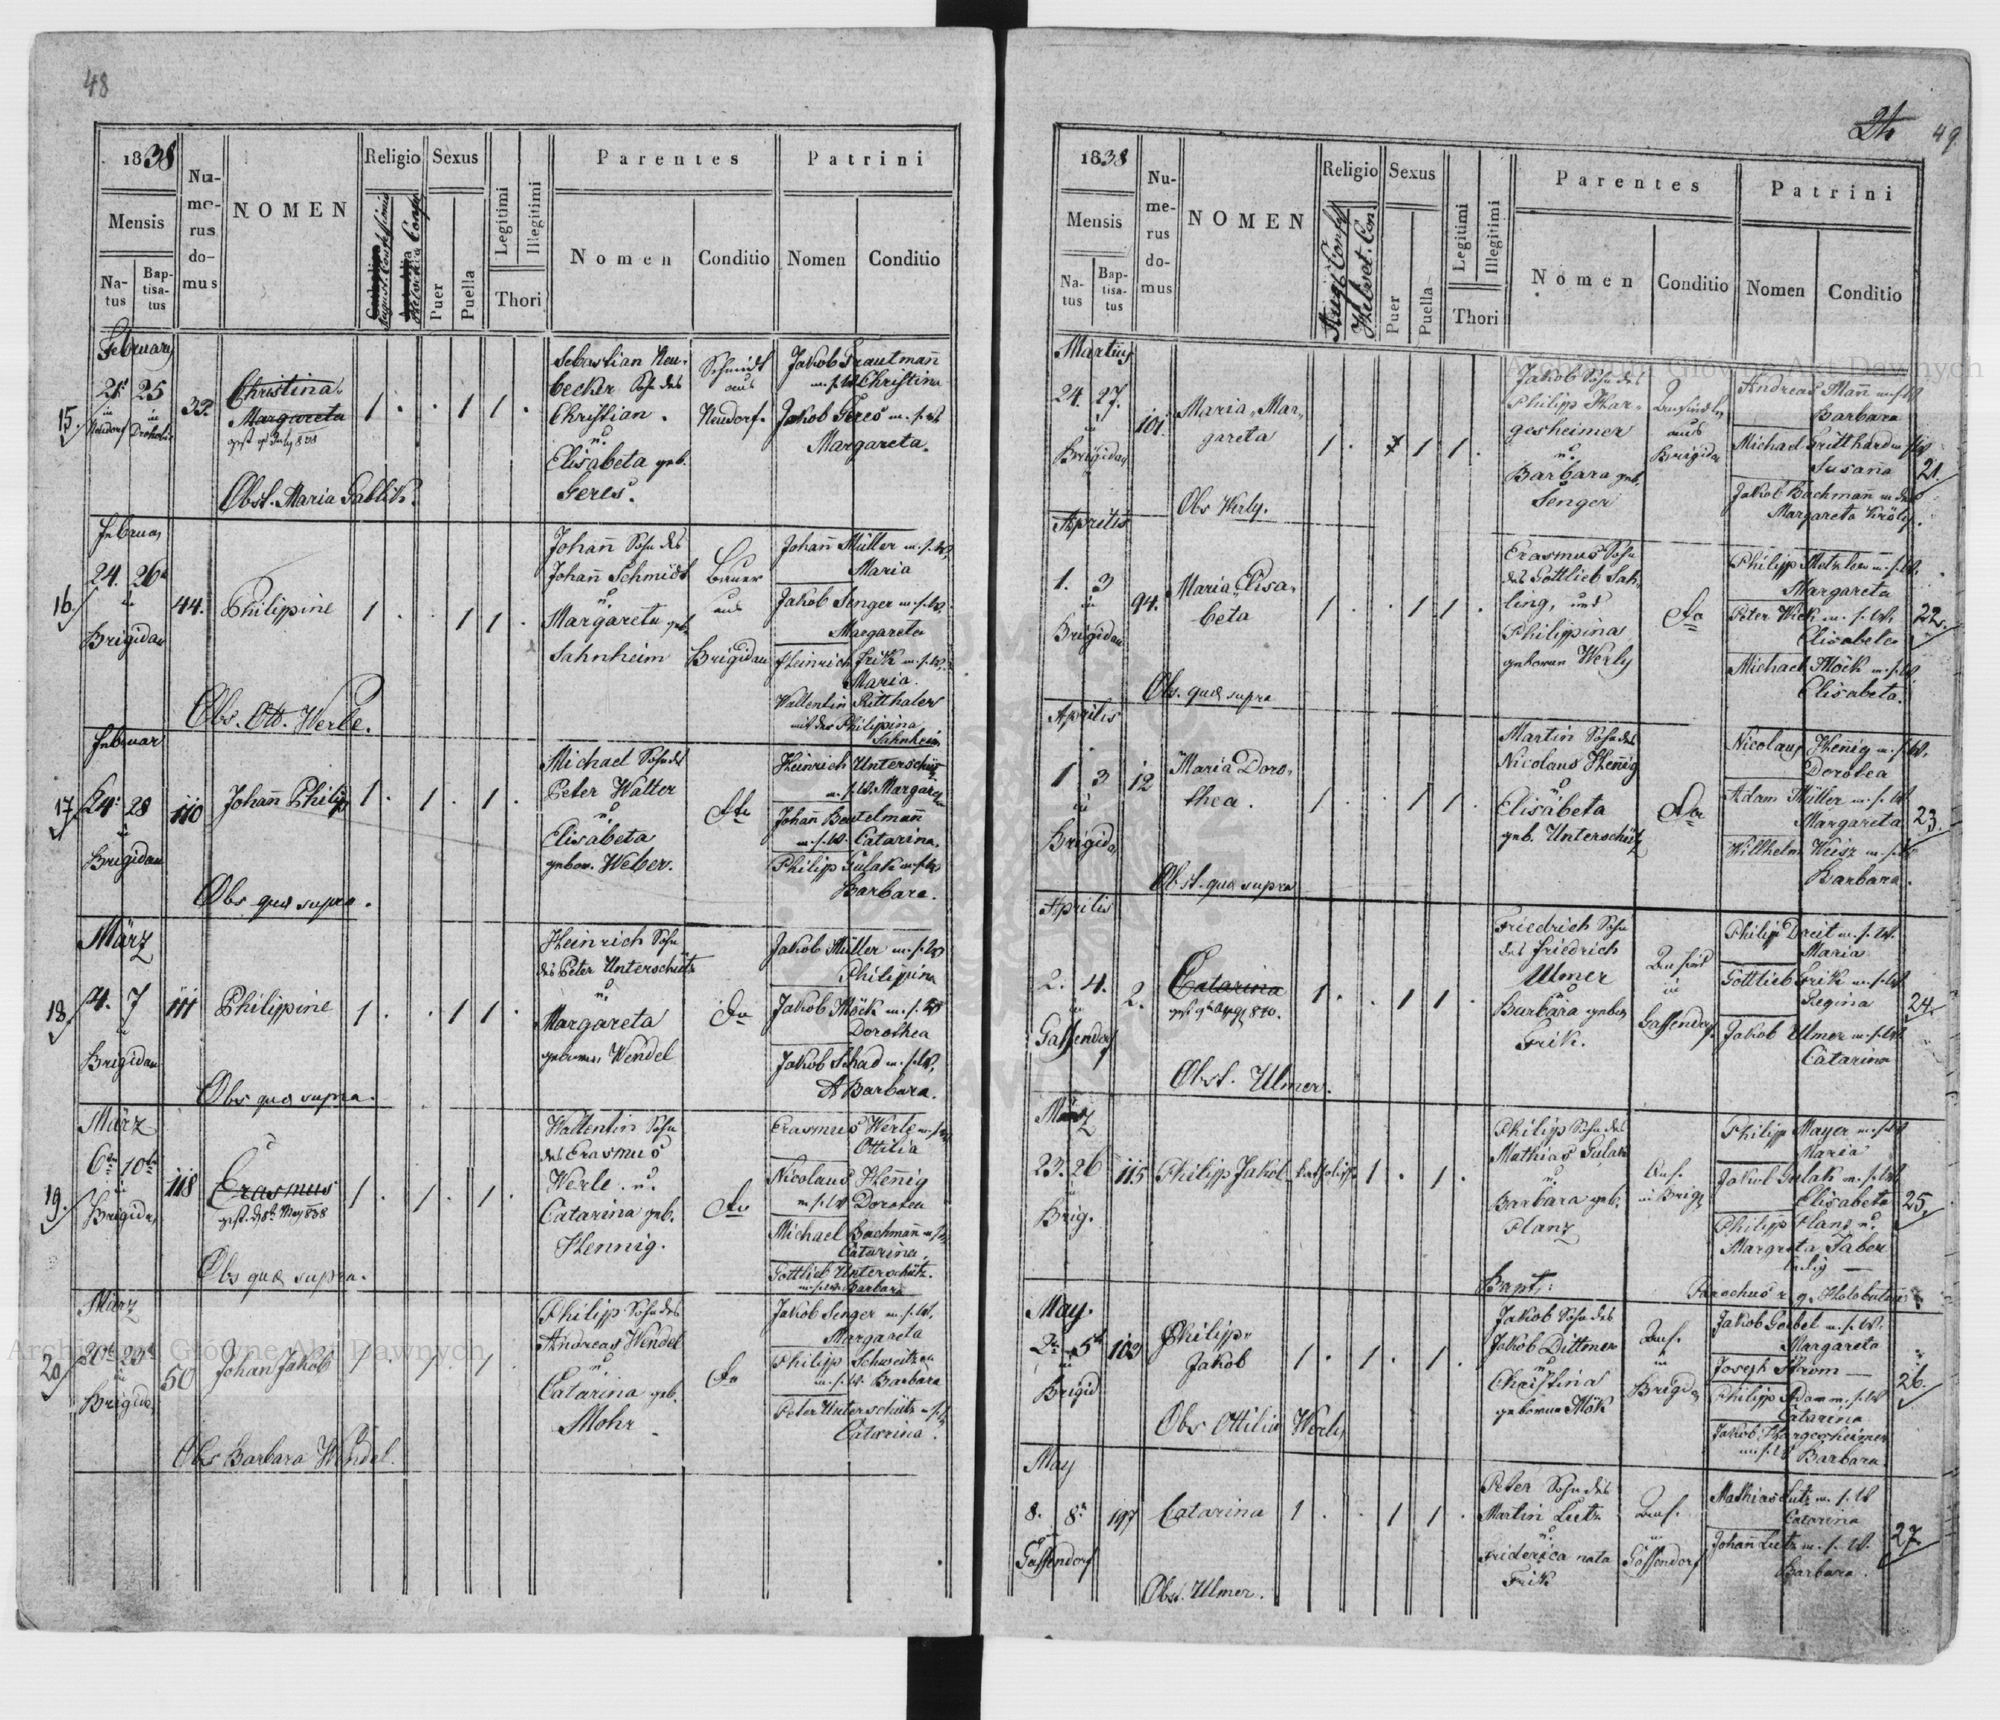 48
1838
Mensis
Natus
Baptisatus
Numerus domus
NOMEN
Religio
Sexus
Puer
Puella
Legitimi
Illegitimi
Thori
Parentes
Nomen
Conditio
Patrini
Nomen
Conditio
15.
February
25 25
in in
Neudorf
32.
Christina
Margareta
1 . . 1 1 .
Sebastian Neu-
becker Sohn des
Christian
u.
Elisabeta geb.
Geres.
Schmidt
aus
Neudorf.
Jakob Trautmañ
m. s. W. Christina
Jakob Geres m. s. W.
Margareta.
Obst. Maria Gablik.
16.
Februar
24. 26
in
Brigidau
44.
Philippine
1 . . 1 1 .
Johañ Sohn des
Johañ Schmidt
u.
Margareta geb.
Sahnheim
Bauer
aus
Brigidau
Johañ Müller m. s. W.
Maria
Jakob Senger m. s. W.
Margareta
Heinrich Frik m. s. W.
Maria.
Wallentin Ritthaler
mit der Philippina
Sahnheim
Obs. Ott. Werle.
17.
Februar
24. 28
in
Brigidau
110
Johañ Philip
1 . 1 . 1 .
Michael Sohn des
Peter Walter
u.
Elisabeta
gebor. Weber.
dto
Heinrich Unterschütz
m. s. W. Margareta
Johañ Beutelmañ
m. s. W. Catarina.
Philipp Gulak m. s. W.
Barbara.
Obs quæ supra.
18.
März
4. 7
in
Brigidau
111
Philippine
1 . . 1 1 .
Heinrich Sohn
des Peter Unterschütz
u.
Margareta
geborene Wendel
do
Jakob Müller m. s. W.
Philippina
Jakob Möck m. s. W.
Dorothea
Jakob Schad m. s. W.
Barbara.
Obs quæ supra.
19.
März
6 10
in
Brigidau
118
Erasmus
gest. d. 8 May 838
1 . 1 . 1 .
Wallentin Sohn
des Erasmus
Werle u.
Catarina geb.
Hennig.
do
Erasmus Werle m. s. W.
Ottilia
Nicolaus Heñig
m. s. W. Dorotea
Michael Bachmañ m. s. W.
Catarina.
Gottlieb Unterschütz
m. s. W. Barbara
Obs quæ supra.
20.
März
20 25
in
Brigidau
50
Johan Jakob
1 . 1 . 1 .
Philipp Sohn des
Andreas Wendel
u.
Catarina geb.
Mohr.
do
Jakob Senger m. s. W.
Margareta
Philipp Schweitzer
m. s. W. Barbara
Peter Unterschütz m. s. W.
Catarina.
Obs Barbara Wendel.
24
49
1838
Mensis
Natus
Baptisatus
Numerus domus
NOMEN
Religio
Augs. Conf.
Helvet. Con.
Sexus
Puer
Puella
Legitimi
Illegitimi
Thori
Parentes
Nomen
Conditio
Patrini
Nomen
Conditio
Martiÿ
24. 27.
in
Brigidau
101.
Maria Mar-
gareta
1 . 1 1 .
Jakob Sohn des
Philipp Har-
gesheimer
u.
Barbara geb.
Senger
aus
Brigidau
Andreas Mañ m. s. W.
Barbara
Michael Gritthard m. s. W.
Susana
Jakob Bachmañ m. der
Margareta Kröly.
21.
Obs Werly.
Aprilis
1. 3
in
Brigidau
94.
Maria Elisa-
beta
1 . . 1 1 .
Erasmus Sohn
des Gottlieb Sah-
ling, und
Philippina
geboren Werly
do
Philipp Metzler m. s. W.
Margareta
Peter Wick m. s. W.
Elisabeta
Michael Möck m. s. W.
Elisabeta.
22.
Obs. quæ supra
Aprilis
1 3
in
Brigida
12
Maria Doro-
thea.
1 . . 1 1 .
Martin Sohn des
Nicolaus Heñig
u.
Elisabeta
geb. Unterschütz
do
Nicolaus Heñig m. s. W.
Dorotea
Adam Müller m. s. W.
Margareta
Willhelm Weisz m. s. W.
Barbara.
23.
Obst. quæ supra
Aprilis
2. 4.
in
Gassendorf
2.
Catarina
1 . . 1 1 .
Friedrich Sohn
des Friedrich
Ulmer
u.
Barbara gebor
Frik.
in
Gassendorf.
Philip Dreit m. s. W.
Maria
Gottlieb Frik m. s. W.
Regina
Jakob Ulmer m. s. W.
Catarina
24.
Obst. Ulmer.
März
23. 26
in
Brig.
115
Philipp Jakob
1 . 1 .
Philip Sohn des
Mathias Gulak
u.
Barbara geb.
Planz
Ans.
in Brig.
Philipp Mayer m. s. W.
Maria
Jakob Gulak m. s. W.
Elisabeta
Philipp Planz u.
Margreta Faber
ledig
25.
Bapt: Parochus r. g. Holobutow
May.
2 5
in
Brigid
102
Philipp
Jakob
1 . 1 . 1 .
Jakob Sohn des
Jakob Dittmer
und
Christina
geborene Mök
Ans.
in
Brigidau
Jakob Goebel m. s. W.
Margareta
Joseph Strom
Philipp Adam m. s. W.
Catarina
Jakob Hargesheimer
m. s. W. Barbara.
26.
Obs Ottilia Werly
May
8. 8
in
Gassendorf
197
Catarina
1 . . 1 1 .
Peter Sohn des
Martin Lutz
u.
Friderica nata
Frik
Ans.
in
Gassendorf
Mathias Lutz m. s. W
Catarina
Johañ Lutz m. s. W.
Barbara.
27.
Obst. Ulmer.
Archiwum Główne Akt Dawnych
Archiwum Główne Akt Dawnych